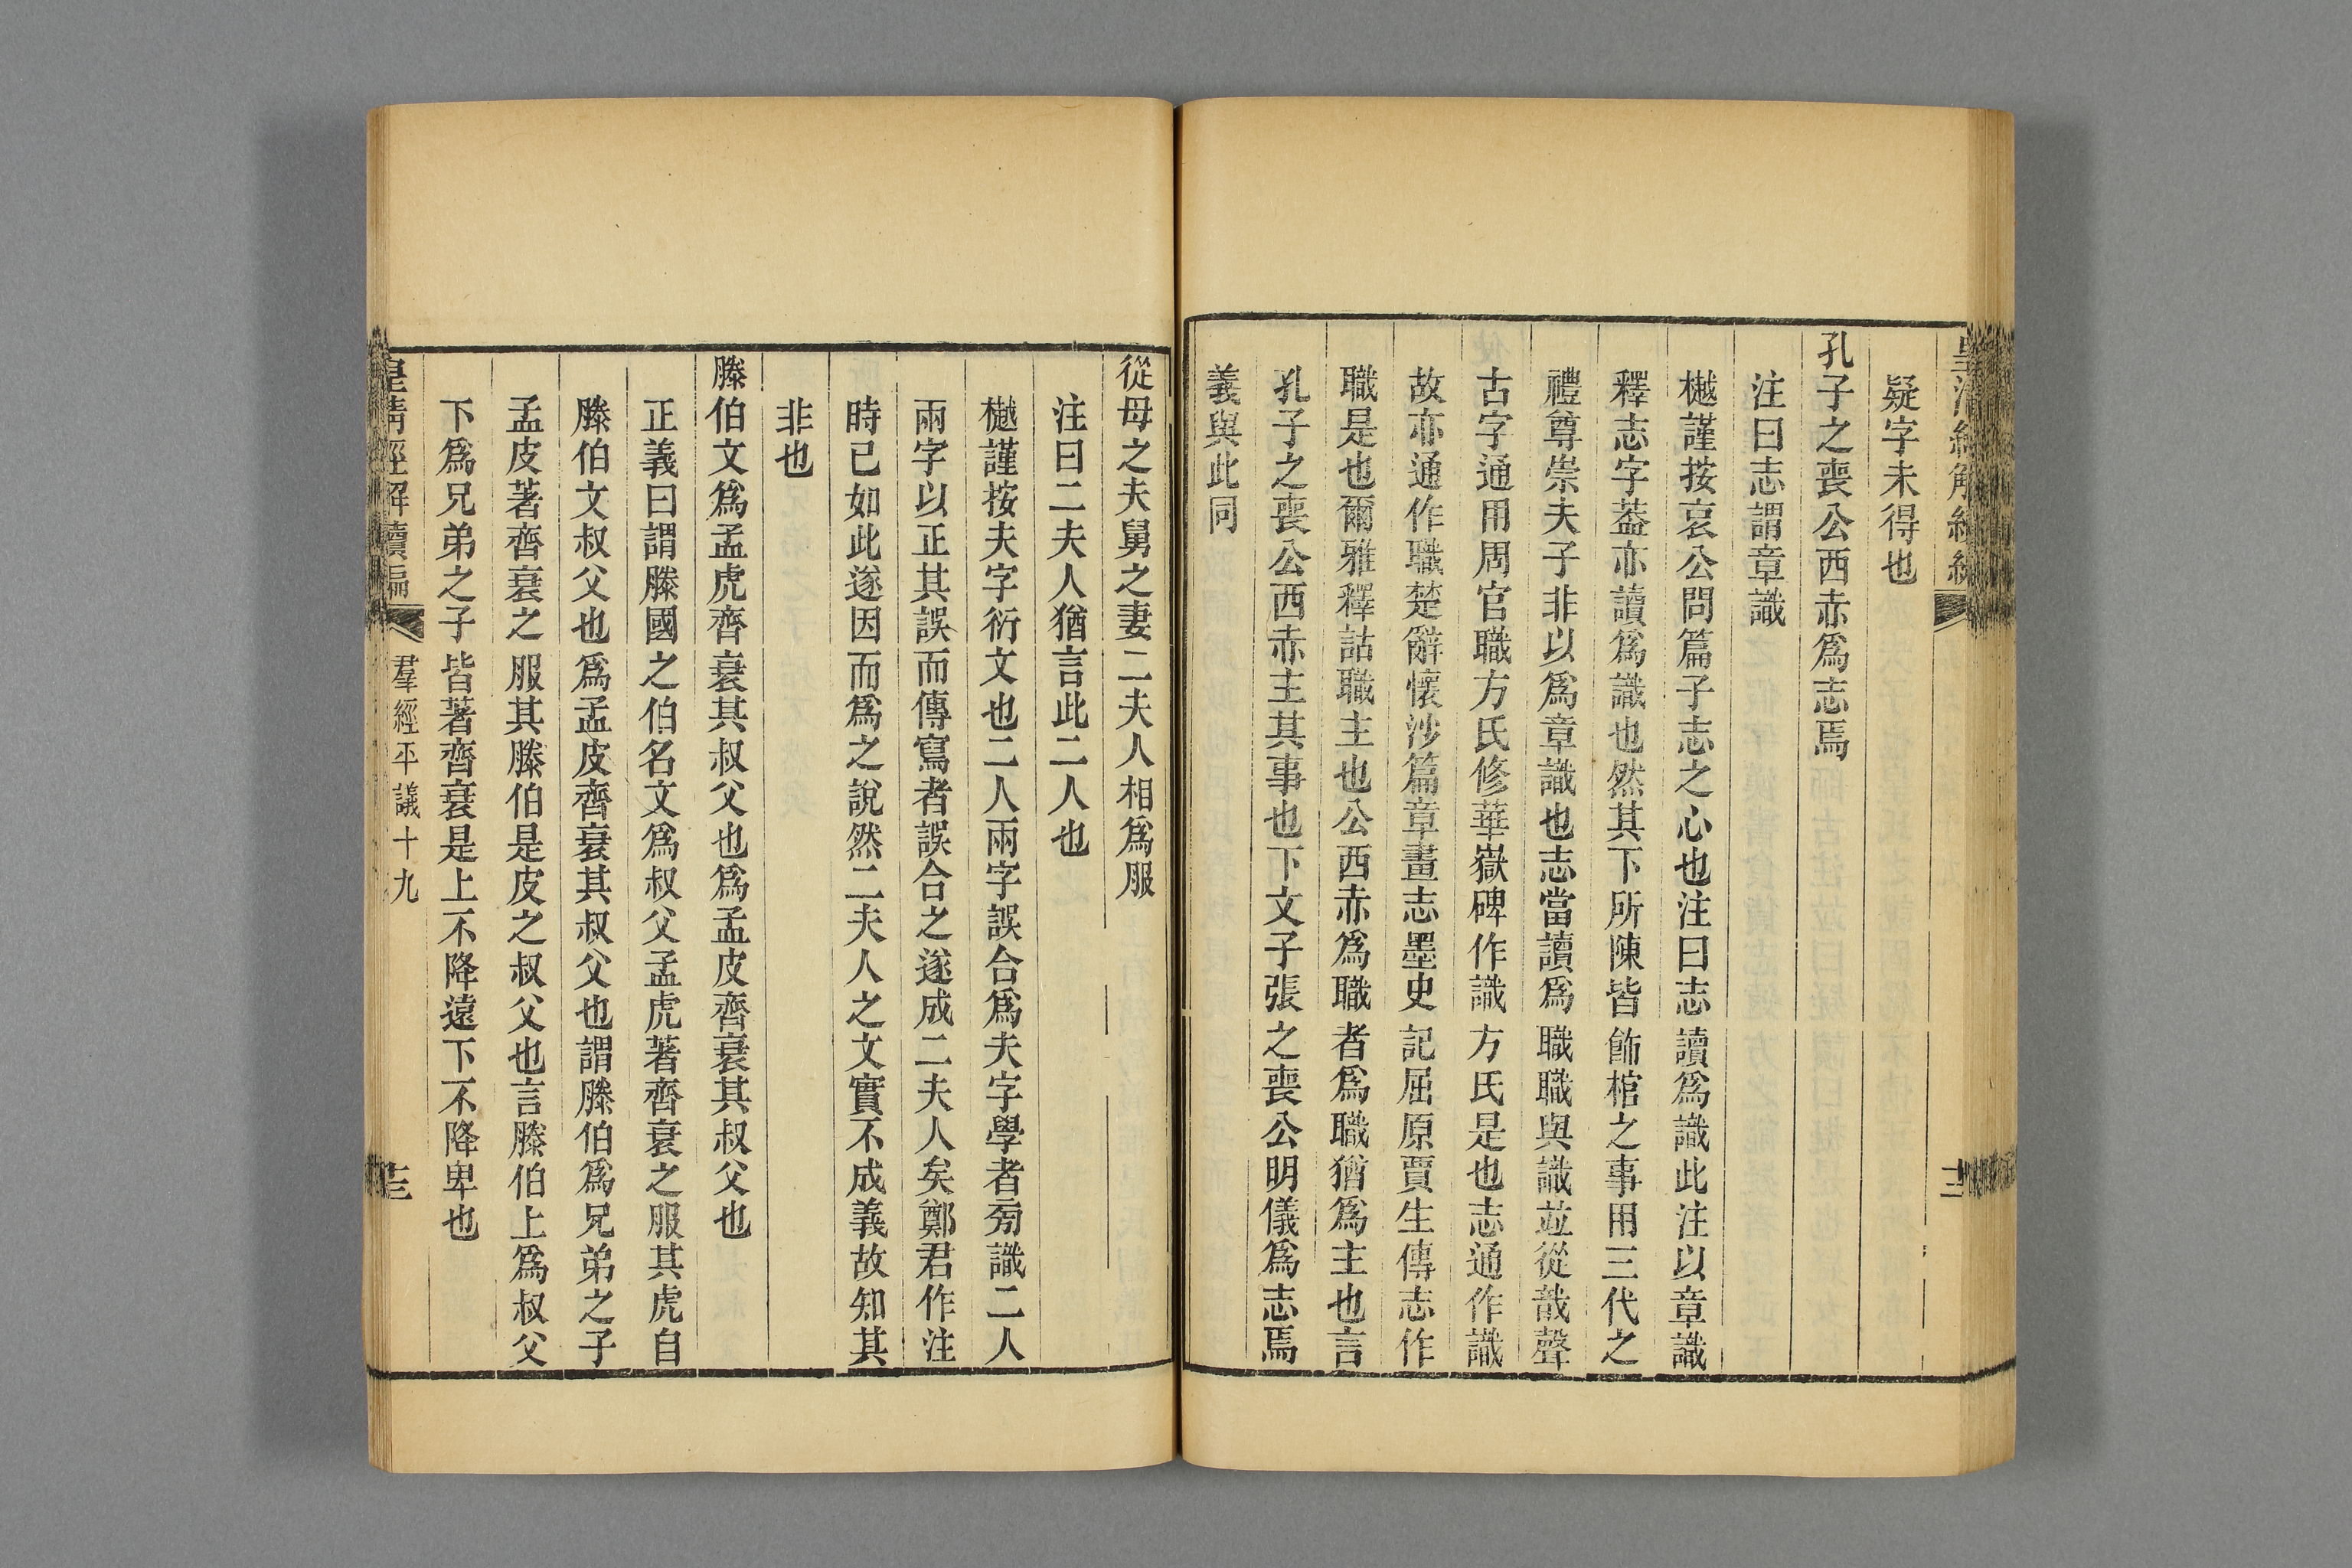 疑字未得也
孔子之喪公西赤爲志焉
注曰志謂章識
樾謹按哀公問篇子志之心也注曰志讀爲識此注以章識
釋志字葢亦讀爲識也然其下所陳皆飾棺之事用三代之
禮尊崇夫子非以爲章識也志當讀爲職職與識竝從戠聲
古字通用周官職方氏修華嶽碑作識方氏是也志通作識
故亦通作職楚辭懷沙篇章畫志墨史記屈原賈生傳志作
職是也爾雅釋詁職主也公西赤爲職者爲職猶爲主也言
孔子之喪公西赤主其事也下文子張之喪公明儀爲志焉
義與此同
從母之夫舅之妻二夫人相爲服
注曰二夫人猶言此二人也
樾謹按夫字衍文也二人兩字誤合爲夫字學者㫄識二人
兩字以正其誤而傳寫者誤合之遂成二夫人矣鄭君作注
時已如此遂因而爲之說然二夫人之文實不成義故知其
非也
滕伯文爲孟虎齊衰其叔父也爲孟皮齊衰其叔父也
正義曰謂滕國之伯名文爲叔父孟虎著齊衰之服其虎自
滕伯文叔父也爲孟皮齊衰其叔父也謂滕伯爲兄弟之子
孟皮著齊衰之服其滕伯是皮之叔父也言滕伯上爲叔父
下爲兄弟之子皆著齊衰是上不降遠下不降卑也
皇清經解續編
羣經平議十九
十三